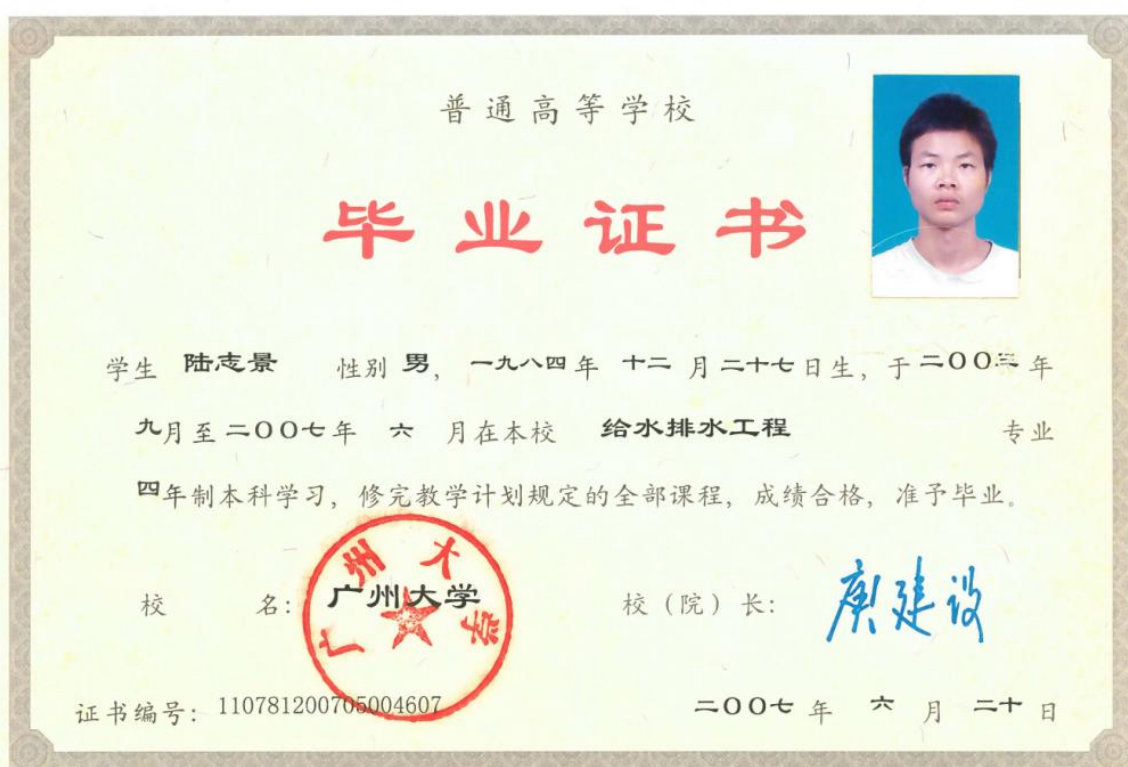 普通高等学校
毕业证书
学生 陆志景 性别 男, 一九八四年 十二 月 二十七日生, 于二〇〇三年
九月至二〇〇七年 六 月在本校 给水排水工程 专业
四年制本科学习, 修完教学计划规定的全部课程, 成绩合格, 准予毕业。
广州大学
校 名: 广州大学 校(院)长: 庾建设
证书编号: 110781200705004607 二〇〇七 年 六 月 二十 日